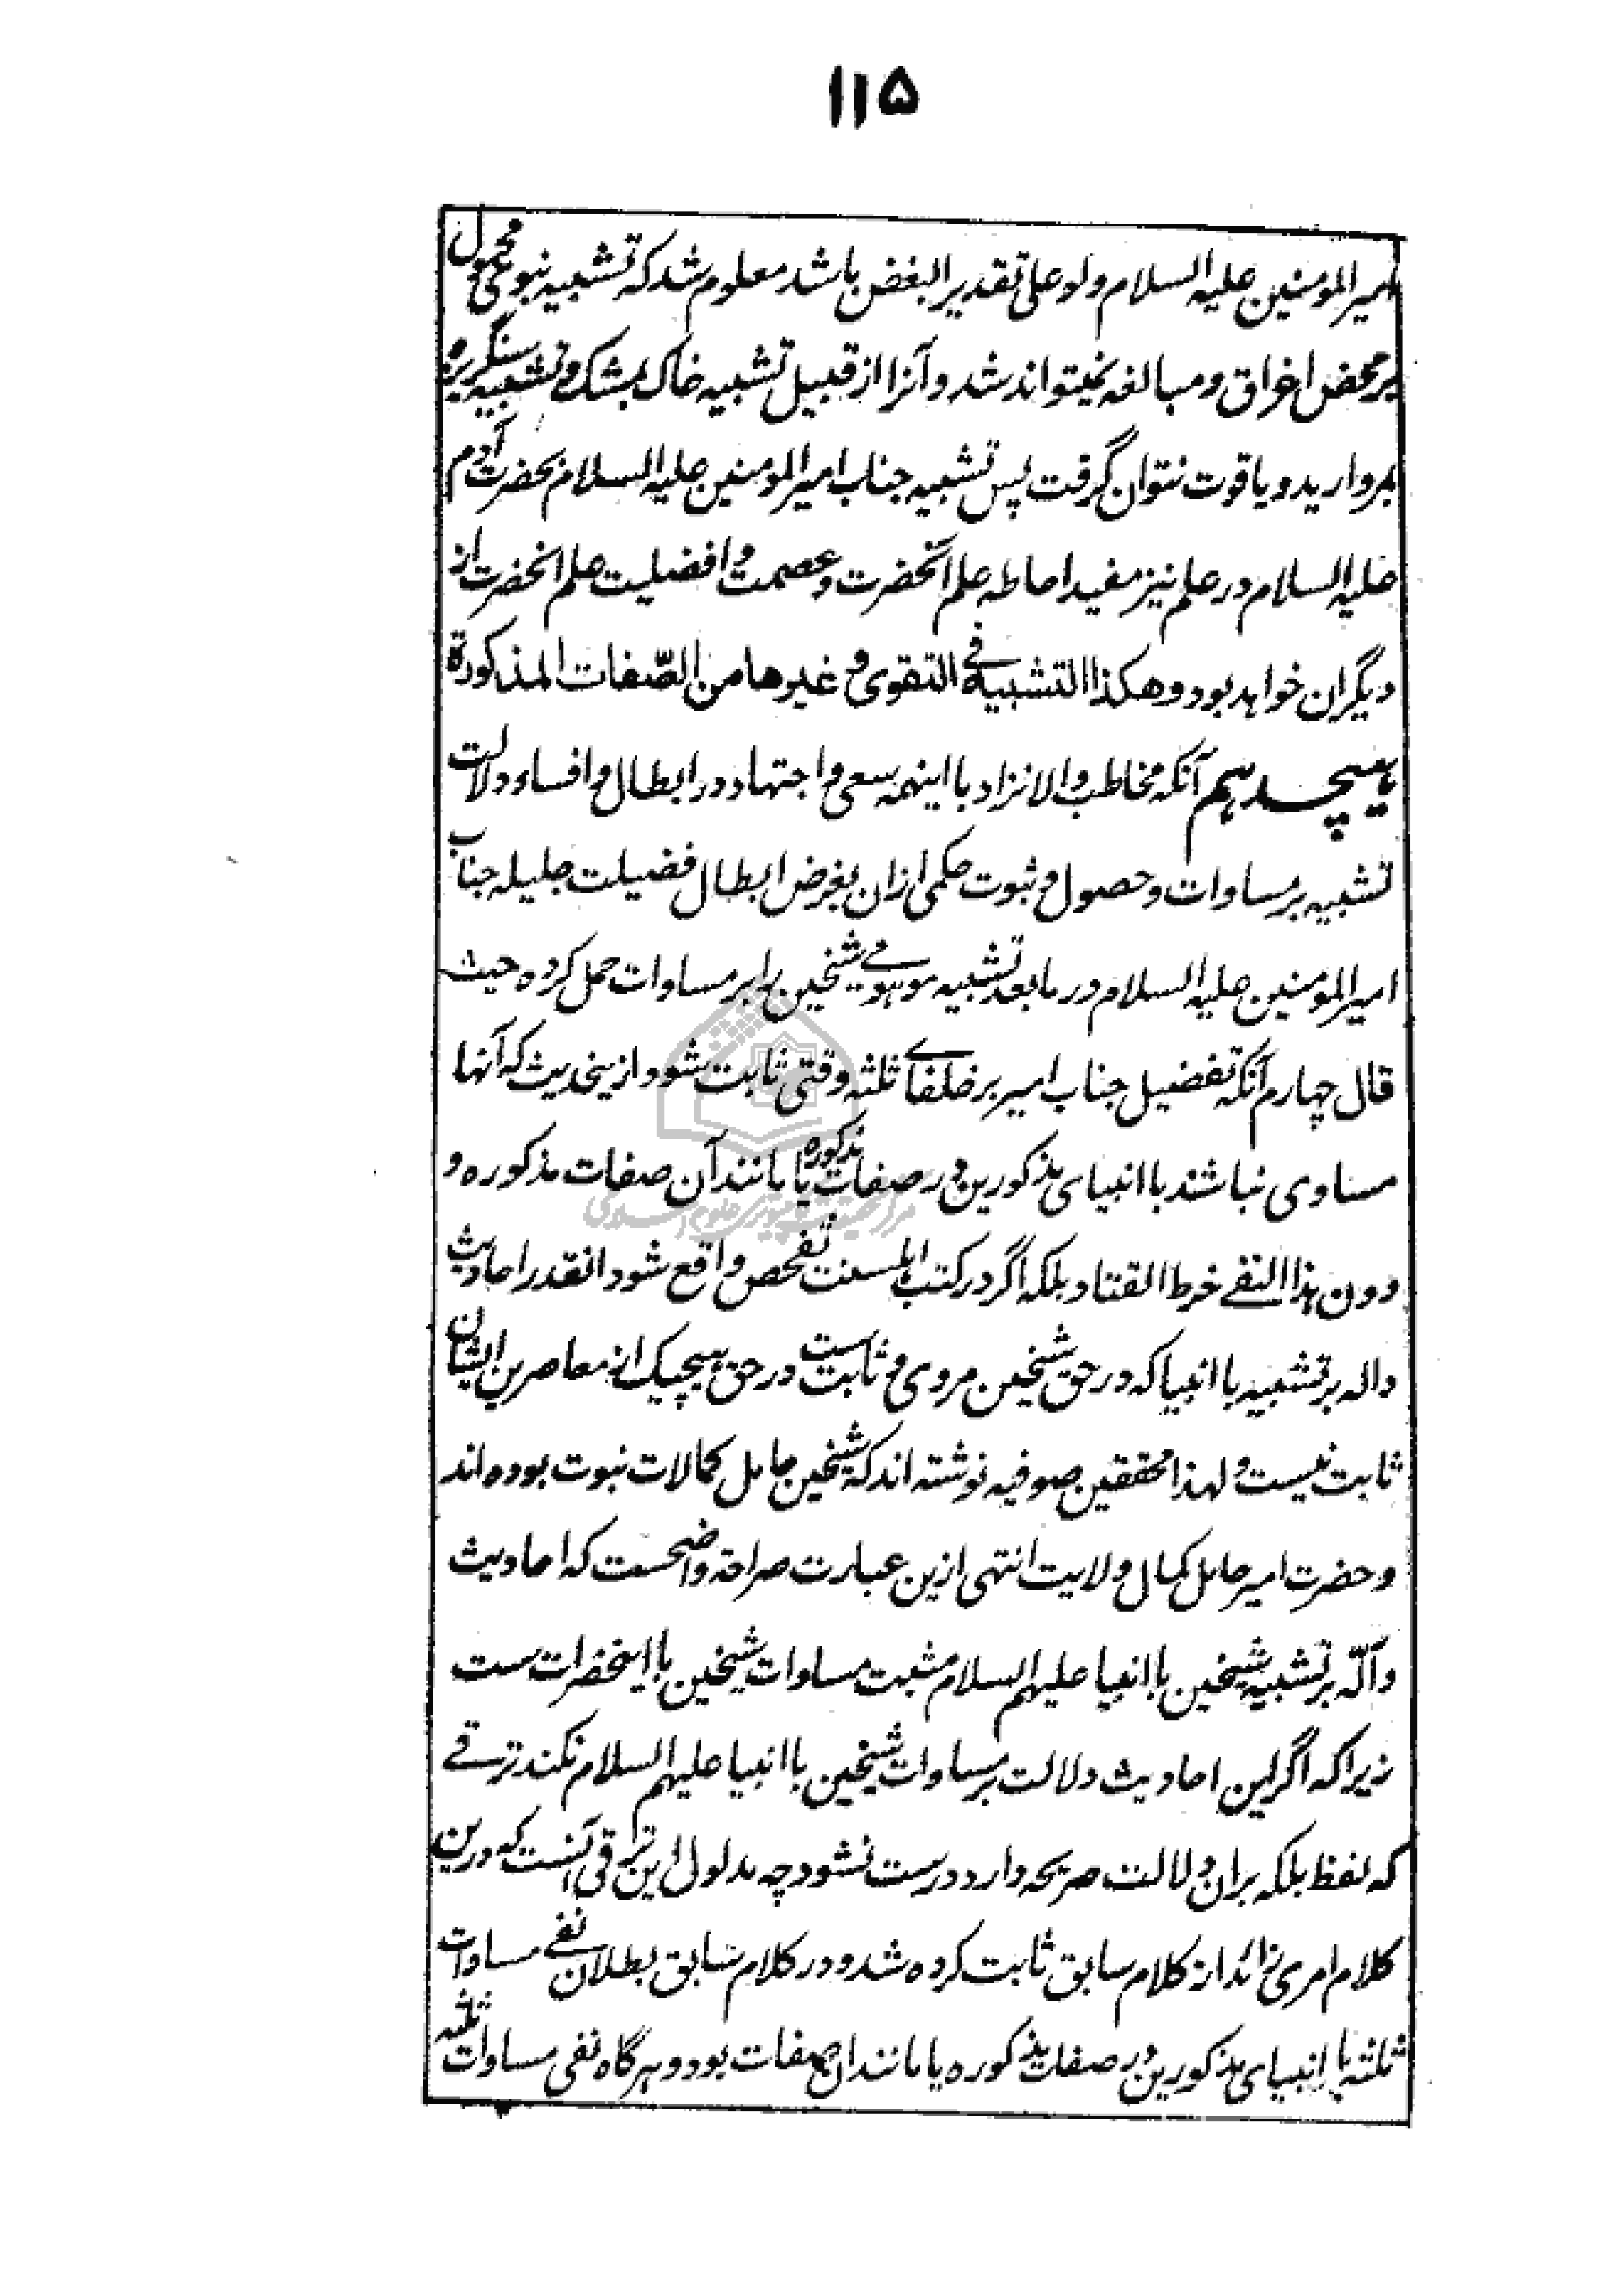 ۱۱۵
امیر المومنین علیه السلام ولو علی تقدیر البغض باشد معلوم شد که تشبیه نبوی محمول
بر محض اغراق و مبالغه نمیتواند شد و آنرا از قبیل تشبیه خاک بمشک و تشبیه سنگریزه
بمروارید و یاقوت نتوان گرفت پس تشبیه جناب امیر المومنین علیه السلام بحضرت آدم
علیه السلام در علم نیز مفید احاطه علم آنحضرت و عصمت و افضلیت علم آنحضرت از
دیگران خواهد بود و هکذا التشبیه فی التقوی و غیرها من الصّفات المذکورة
هیجدهم آنکه مخاطب والانژاد با اینهمه سعی و اجتهاد در ابطال و افساد دلالت
تشبیه بر مساوات و حصول و ثبوت حکمی ازان بغرض ابطال فضیلت جلیله جناب
امیر المومنین علیه السلام در ما بعد تشبیه موهومی شیخین را بر مساوات حمل کرده حیث
قال چهارم آنکه تفضیل جناب امیر بر خلفای ثلثه وقتی ثابت شود ازین حدیث که آنها
مساوی نباشند با انبیای مذکورین در صفات مذکوره یا مانند آن صفات مذکوره و
دون هذا النفی خرط القتاد بلکه اگر در کتب اهلسنت تفحص واقع شود انقدر احادیث
داله بر تشبیه با انبیا که در حق شیخین مروی و ثابت ست در حق هیچیک از معاصرین ایشان
ثابت نیست و لهذا محققین صوفیه نوشته اند که شیخین حامل کمالات نبوت بوده اند
و حضرت امیر حامل کمال ولایت انتهی ازین عبارت صراحة واضحست که احادیث
دالّه بر تشبیه شیخین با انبیا علیهم السلام مثبت مساوات شیخین با اینحضرات ست
زیرا که اگر این احادیث دلالت بر مساوات شیخین با انبیا علیهم السلام نکند ترقی
که لفظ بلکه بران دلالت صریحه دارد درست نشود چه مدلول این ترقی آنست که درین
کلام امری زائد از کلام سابق ثابت کرده شد و در کلام سابق بطلان نفی مساوات
ثلثه با انبیای مذکورین در صفات مذکوره یا مانند آن صفات بود و هر گاه نفی مساوات ثلثه
مرکز تحقیقات کامپیوتری علوم اسلامی